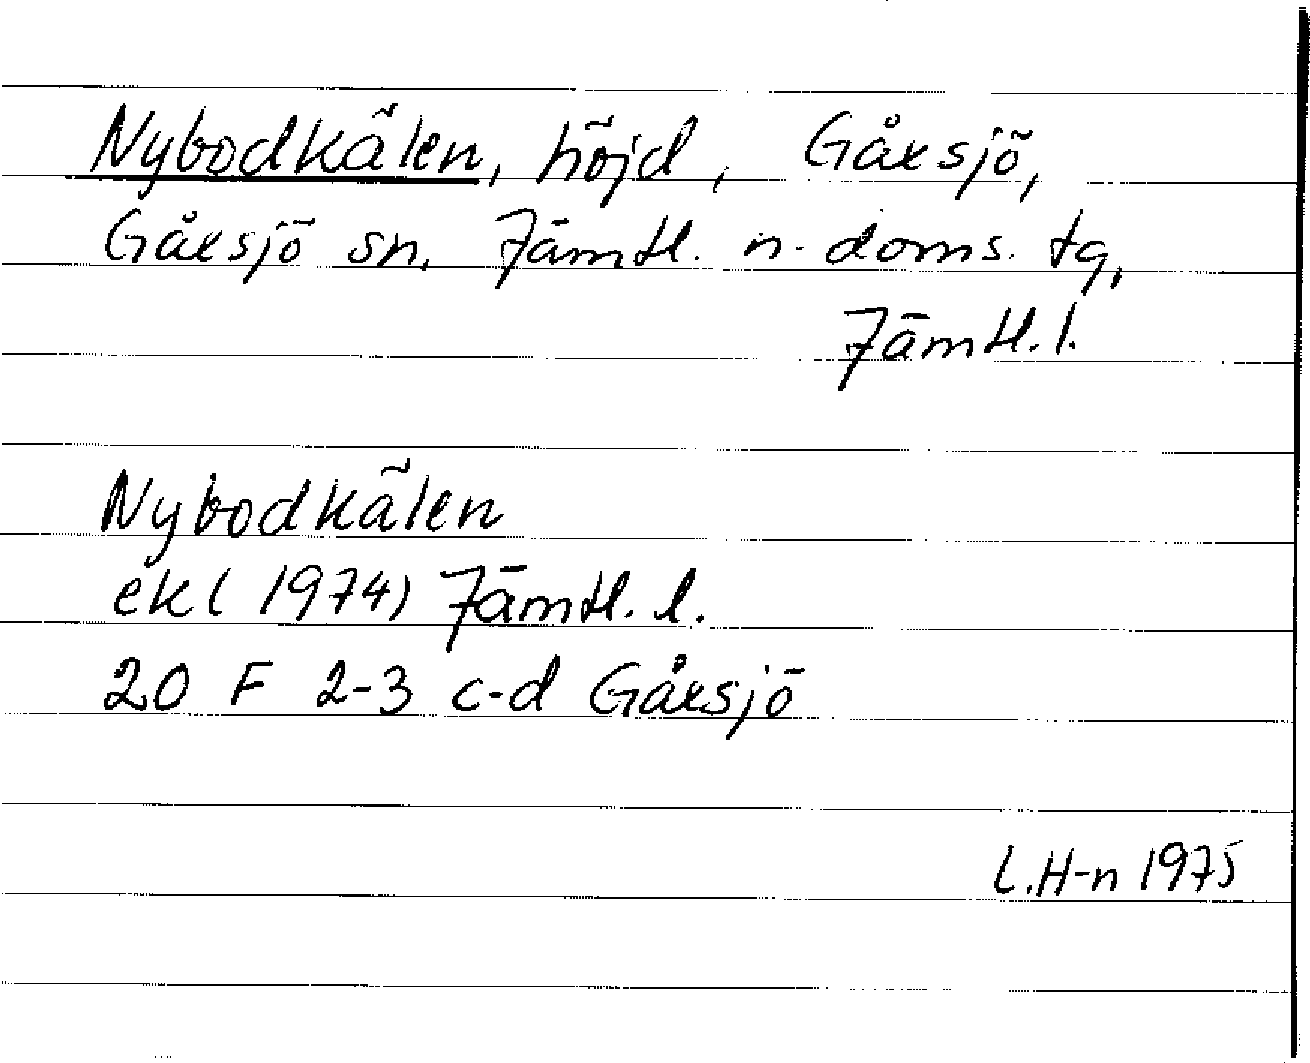 Nybodkälen, höjd, Gåxsjö,
Gåxsjö sn, Jämtl. n. doms. tg,
Jämtl. l.
Nybodkälen
ek ( 1974) Jämtl. l.
20 F 2-3 c-d Gåxsjö
L.H-n 1975